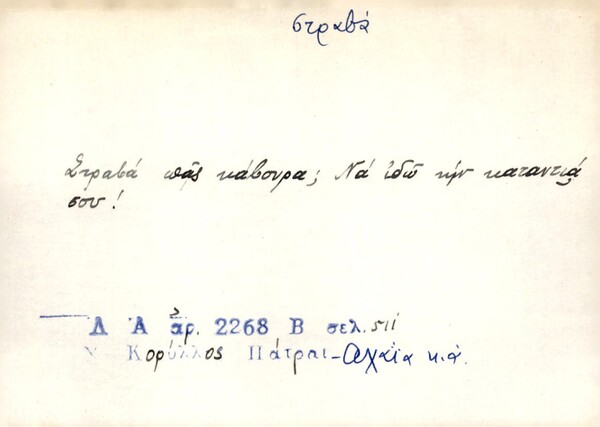 στραβά
Στραβά πᾷς κάβουρα; Νά ἰδῶ τήν καταντιά
σου!
Λ Α ἀρ. 2268 Β σελ. 511
Ν Κορύλλος Πάτραι - Ἀχαΐα κ.ἀ.